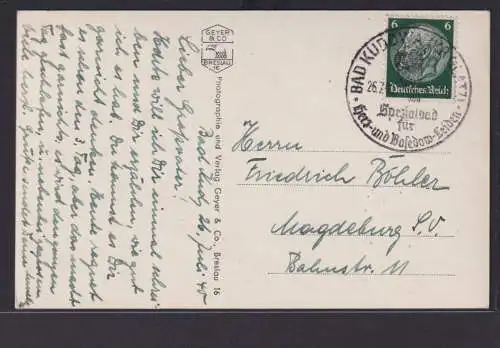 Bad Kud, 26. Juli 40
Lieber Großvater!
Heute will ich Dir einmal schrei-
ben und Dir erzählen, wie gut
ich es hab. Du kannst es Dir
garnicht denken. Heute regnet
es schon den 3. Tag, aber das macht
fast garnichts, es wird den ganzen
Tag
viele herzl. Grüße sendet Deine
GEYER
& CO
BRESLAU
16
Photographie und Verlag Geyer & Co., Breslau 16
6 6
Deutsches Reich
BAD KUDOWA
26.7.
Spezialbad
für
Herz- und Basedow-Leiden
Herrn
Friedrich Böhler
Magdeburg S.V.
Bahnstr. 11